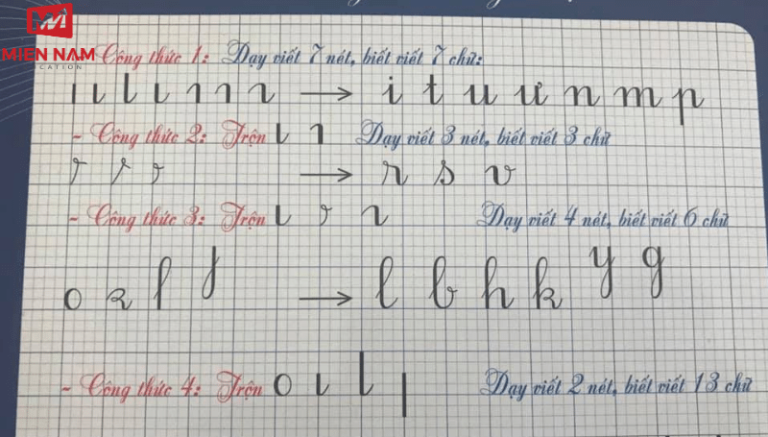 MIEN NAM
CATION
Công thức 1: Dạy viết 7 nét, biết viết 7 chữ:
→ i t u ư n m p
- Công thức 2: Trộn Dạy viết 3 nét, biết viết 3 chữ
→ r s v
- Công thức 3: Trộn Dạy viết 4 nét, biết viết 6 chữ
→ l b h k y g
- Công thức 4: Trộn Dạy viết 2 nét, biết viết 13 chữ